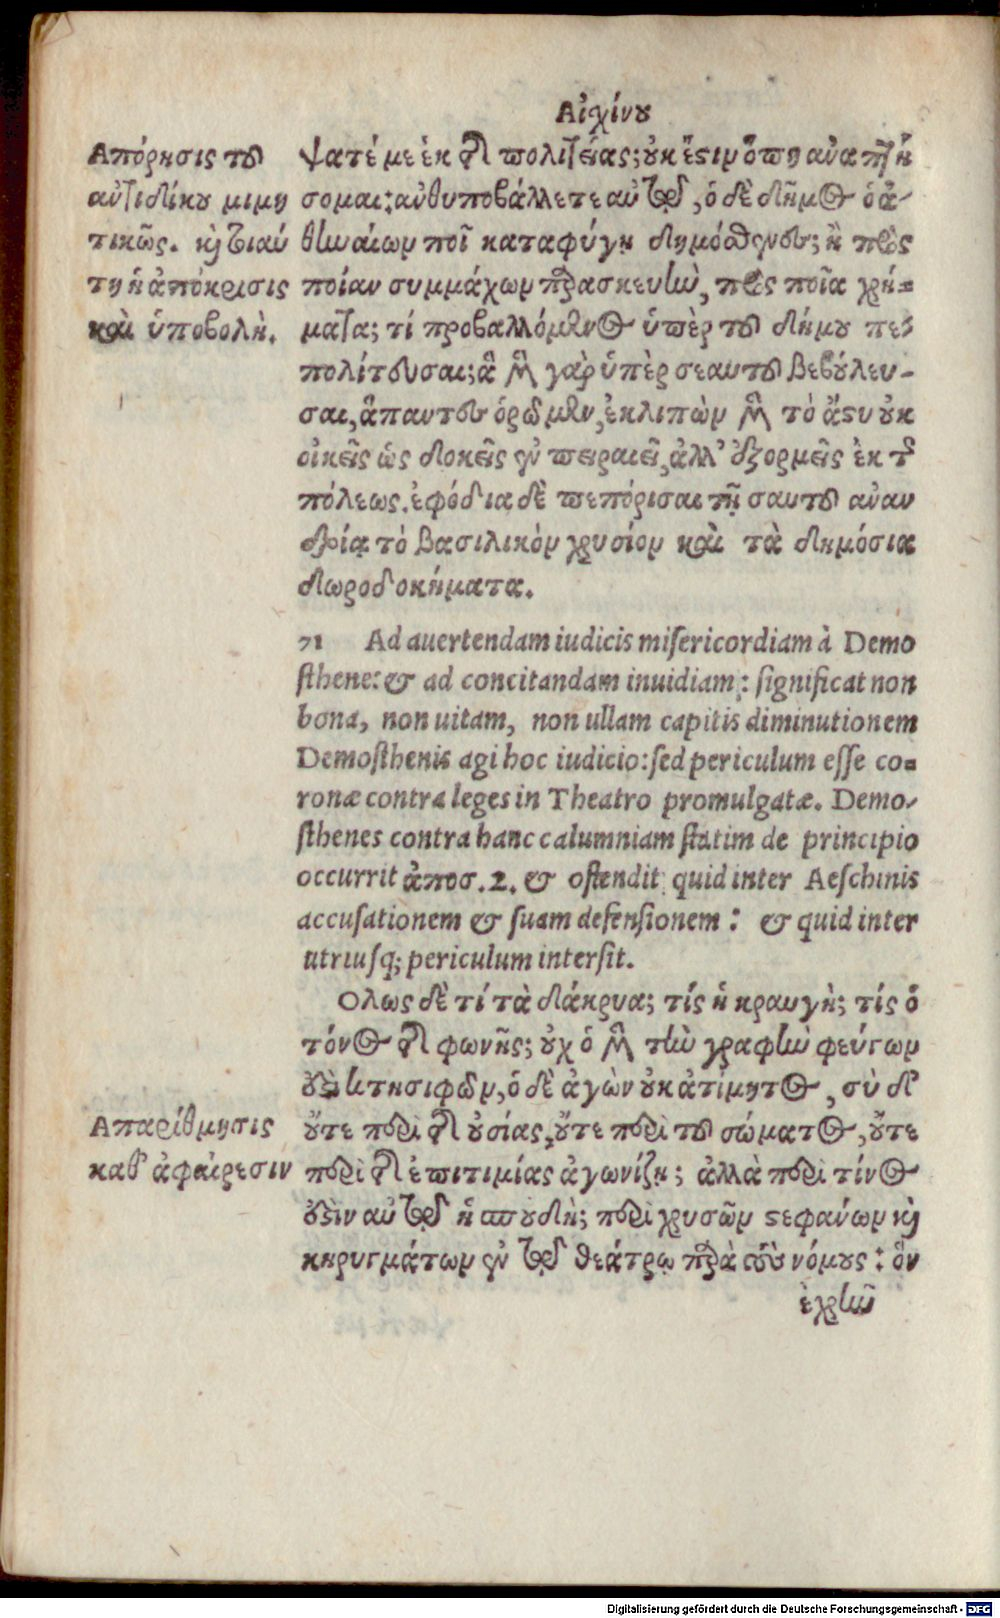 Αἰχίνου
Απόρησις τοῦ
αὐτιδίκου μιμη
τικῶς. καὶ ταύ
τη ἡ ἀπόκρισις
καὶ ὑποβολὴ.
ψατέ με ἐκ τῆς πολιτείας; οὐκ ἔστιν ὅπη ἀναπτή
σομαι: ἀνθυποβάλλετε αὐτῷ, ὁ δὲ δῆμος ὁ ἀ-
θηναίων ποῖ καταφύγῃ δημόσθενες; ἢ πρὸς
ποίαν συμμάχων παρασκευὴν, πρὸς ποῖα χρή-
ματα; τί προβαλλόμενος ὑπὲρ τοῦ δήμου πε
πολίτευσαι; ἃ μὲν γὰρ ὑπὲρ σεαυτοῦ βεβούλευ-
σαι, ἅπαντες ὁρῶμεν, ἐκλιπὼν μὲν τὸ ἄστυ οὐκ
οἰκεῖς ὡς δοκεῖς ἐν πειραιεῖ, ἀλλ' ἐξορμεῖς ἐκ τῆς
πόλεως. ἐφόδια δὲ πεπόρισαι τῇ σαυτοῦ ἀναν
δρίᾳ τὸ βασιλικὸν χρυσίον καὶ τὰ δημόσια
δωροδοκήματα.
71 Ad auertendam iudicis misericordiam à Demo
sthene: & ad concitandam inuidiam: significat non
bona, non uitam, non ullam capitis diminutionem
Demosthenis agi hoc iudicio: sed periculum esse co-
ronæ contra leges in Theatro promulgatæ. Demo-
sthenes contra hanc calumniam statim de principio
occurrit ἀποσ. 2. & ostendit quid inter Aeschinis
accusationem & suam defensionem: & quid inter
utriusq; periculum intersit.
Ολως δὲ τί τὰ δάκρυα; τίς ἡ κραυγὴ; τίς ὁ
τόνος τῆς φωνῆς; οὐχ ὁ μὲν τὴν γραφὴν φεύγων
ὅδε κτησιφῶν, ὁ δὲ ἀγὼν οὐκ ἀτίμητος, σὺ δ'
Απαρίθμησις
καθ' ἀφαίρεσιν
οὔτε περὶ τῆς οὐσίας, οὔτε περὶ τοῦ σώματος, οὔτε
περὶ τῆς ἐπιτιμίας ἀγωνίζῃ; ἀλλὰ περὶ τίνος
ἐστιν αὐτῷ ἡ σπουδὴ; περὶ χρυσῶν στεφάνων καὶ
κηρυγμάτων ἐν τῷ θεάτρῳ παρὰ τοὺς νόμους: ὃν
ἐχρῆν